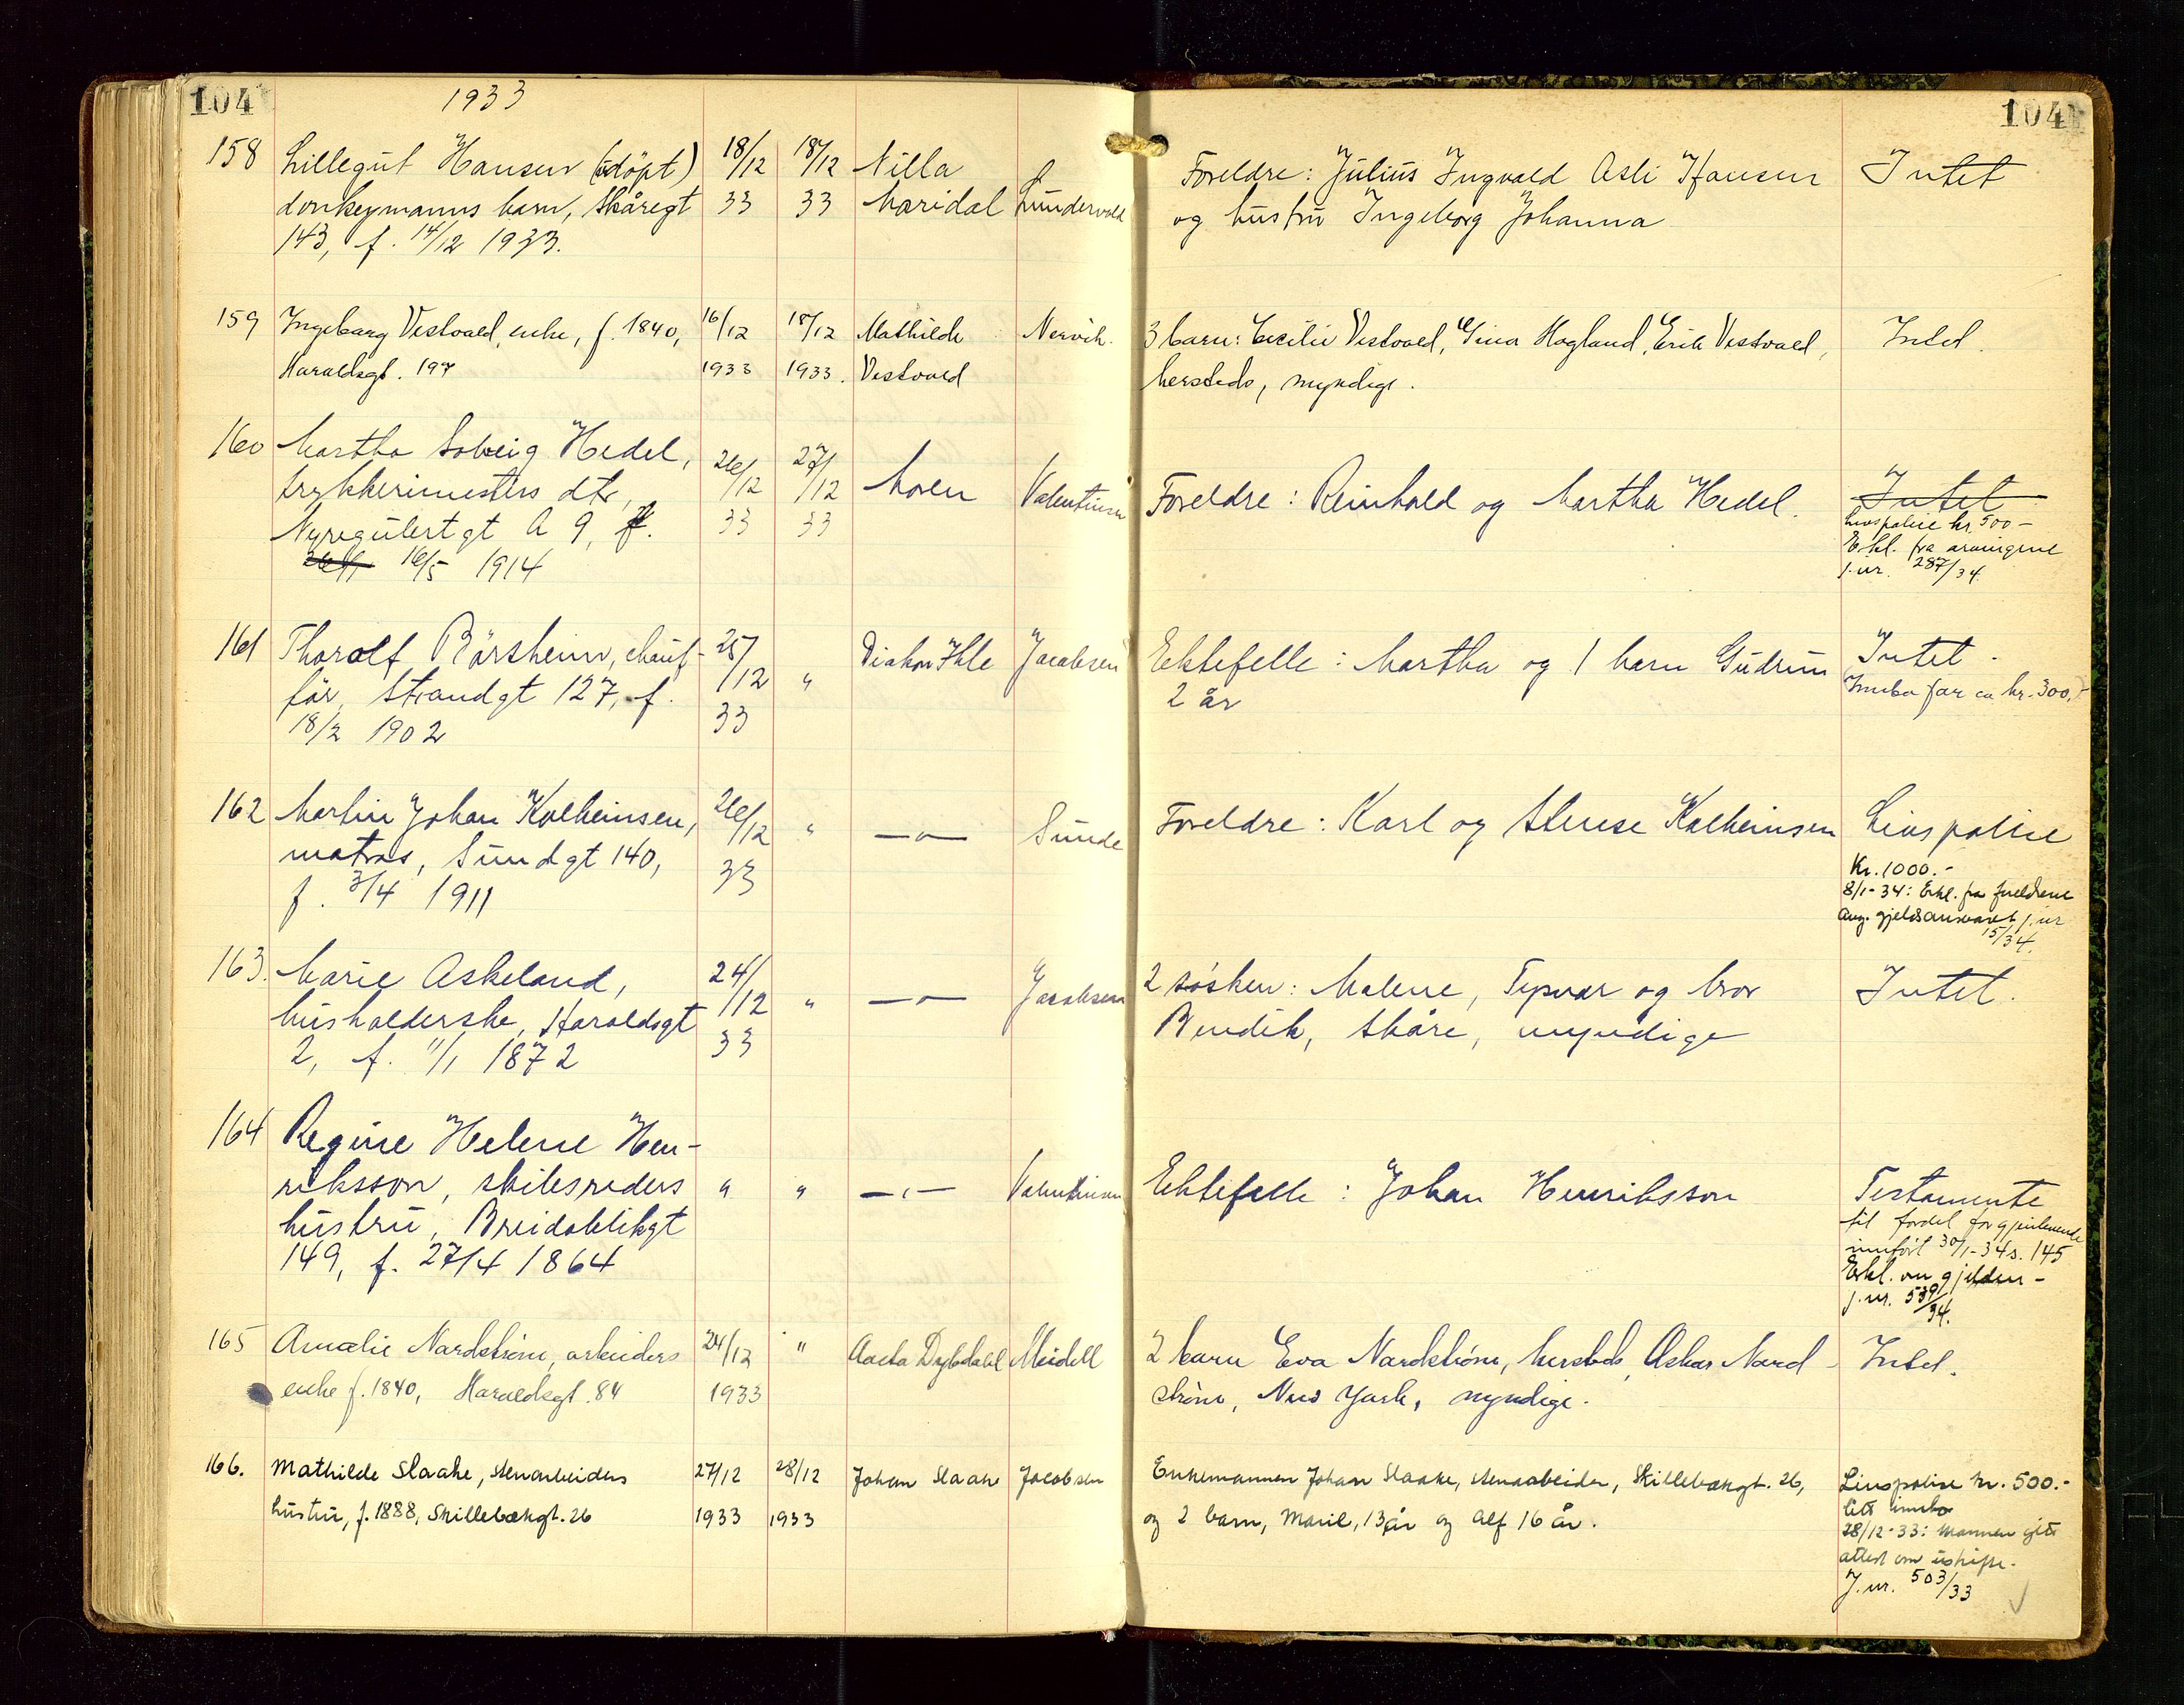 104
1933
104
158 Lillegut Hansen (udöpt) 18/12 18/12 Nilla
donkeymanns barn, Skåregt 33 33 Maridal Lundervold
143, f. 14/12 1933.
Foreldre: Julius Ingvald Asli Hansen Intet
og hustru Ingeborg Johanna
159 Ingeborg Vestvold, enke, f. 1840, 16/12 18/12 Mathilde Nervik.
Haraldsgt. 197 1933 1933. Vestvold
3 barn: Cecilie Vestvold, Gina Hagland, Erik Vestvold, Intet.
hersteds, myndige.
160 Martha Solveig Hedel, 26/12 27/12
trykkerimesters dtr, Moren Valentinsen
Nyregulertgt A 9, f. 33 33
16/5 1914
Foreldre: Reinhold og Martha Hedel. Intet
Livspolise kr. 500 -
Erkl. fra arvingene
j.nr. 287/34.
161 Thorolf Börsheim, chauf- 25/12 " Diakon Ihle Jacobsen
för, Strandgt 127, f. 33
18/2 1902
Ektefelle: Martha og 1 barn Gudrun Intet.
2 år Innbo for ca kr. 300.-
162 Martin Johan Kolheinsen, 26/12 " —"— Sunde
matros, Sundgt 140, 33
f. 3/4 1911
Foreldre: Karl og Therese Kolheinsen Livspolise
Kr. 1000.-
8/1-34: Erkl. fra foreldrene
ang. gjeldsansvaret j.nr
15/34.
163. Marie Askeland, 24/12 " —"— Jacobsen
husholderske, Haraldsgt 33
2, f. 11/1 1872
2 søsken: Malene, Tysvær og bror Intet.
Bendik, Skåre, myndige
164 Regine Helene Hen-
riksson, skibsreders " " —"— Valentinsen
hustru, Breidablikgt
149, f. 27/4 1864
Ektefelle: Johan Henriksson Testamente
til fordel for gjenlevende
innført 30/1-34 s. 145
Erkl. om gjelden -
j.nr. 539/34.
165 Amalie Nordstrøm, arbeiders 24/12 " Aasta Dybdahl Meidell
enke f. 1840, Haraldsgt. 84 1933
2 barn Eva Nordstrøm, hersteds, Oskar Nord- Intet.
strøm, New York, myndige.
166. Mathilde Slaake, stenarbeiders 27/12 28/12 Johan Slaake Jacobsen
hustru, f. 1888, Skillebækgt. 26 1933 1933
Enkemannen Johan Slaake, stenarbeider, Skillebækgt. 26, Livspolise kr. 500.-
og 2 barn, Maril, 13 år og Alf 16 år. litt innbo
28/12-33: Mannen gitt
attest om uskifte.
J.nr. 503/33